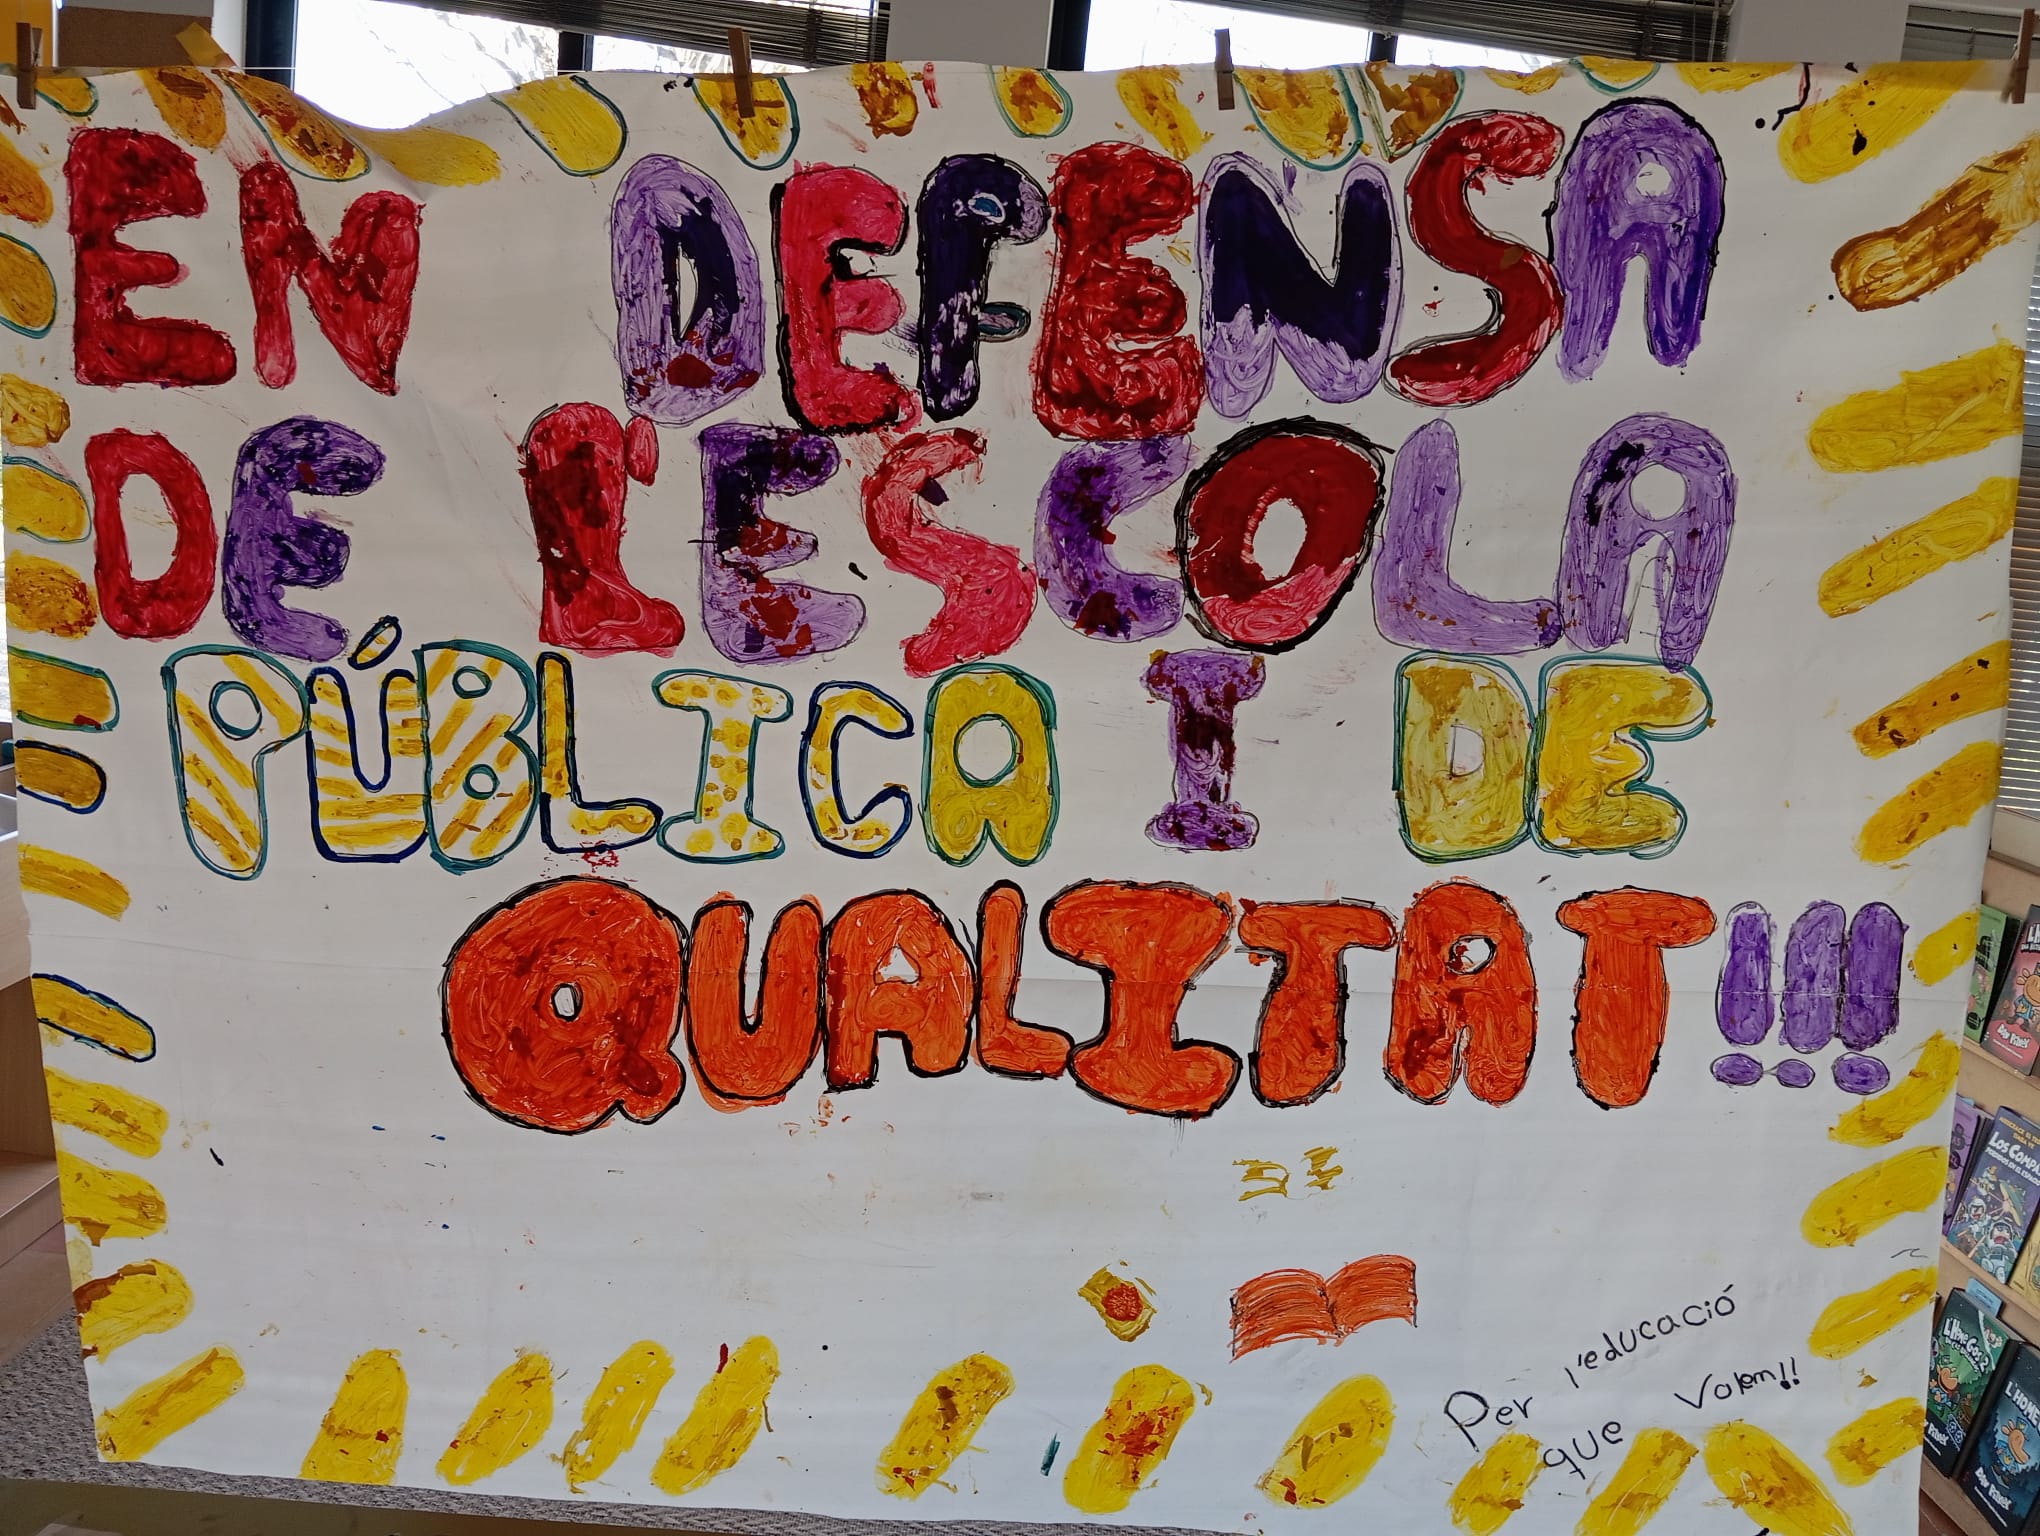 EN DEFENSA
DE L'ESCOLA
PÚBLICA I DE
QUALITAT!!!
Per l'educació
que volem!!
LOS COMPAS
L'HOME GOS 2
DAV PILKEY